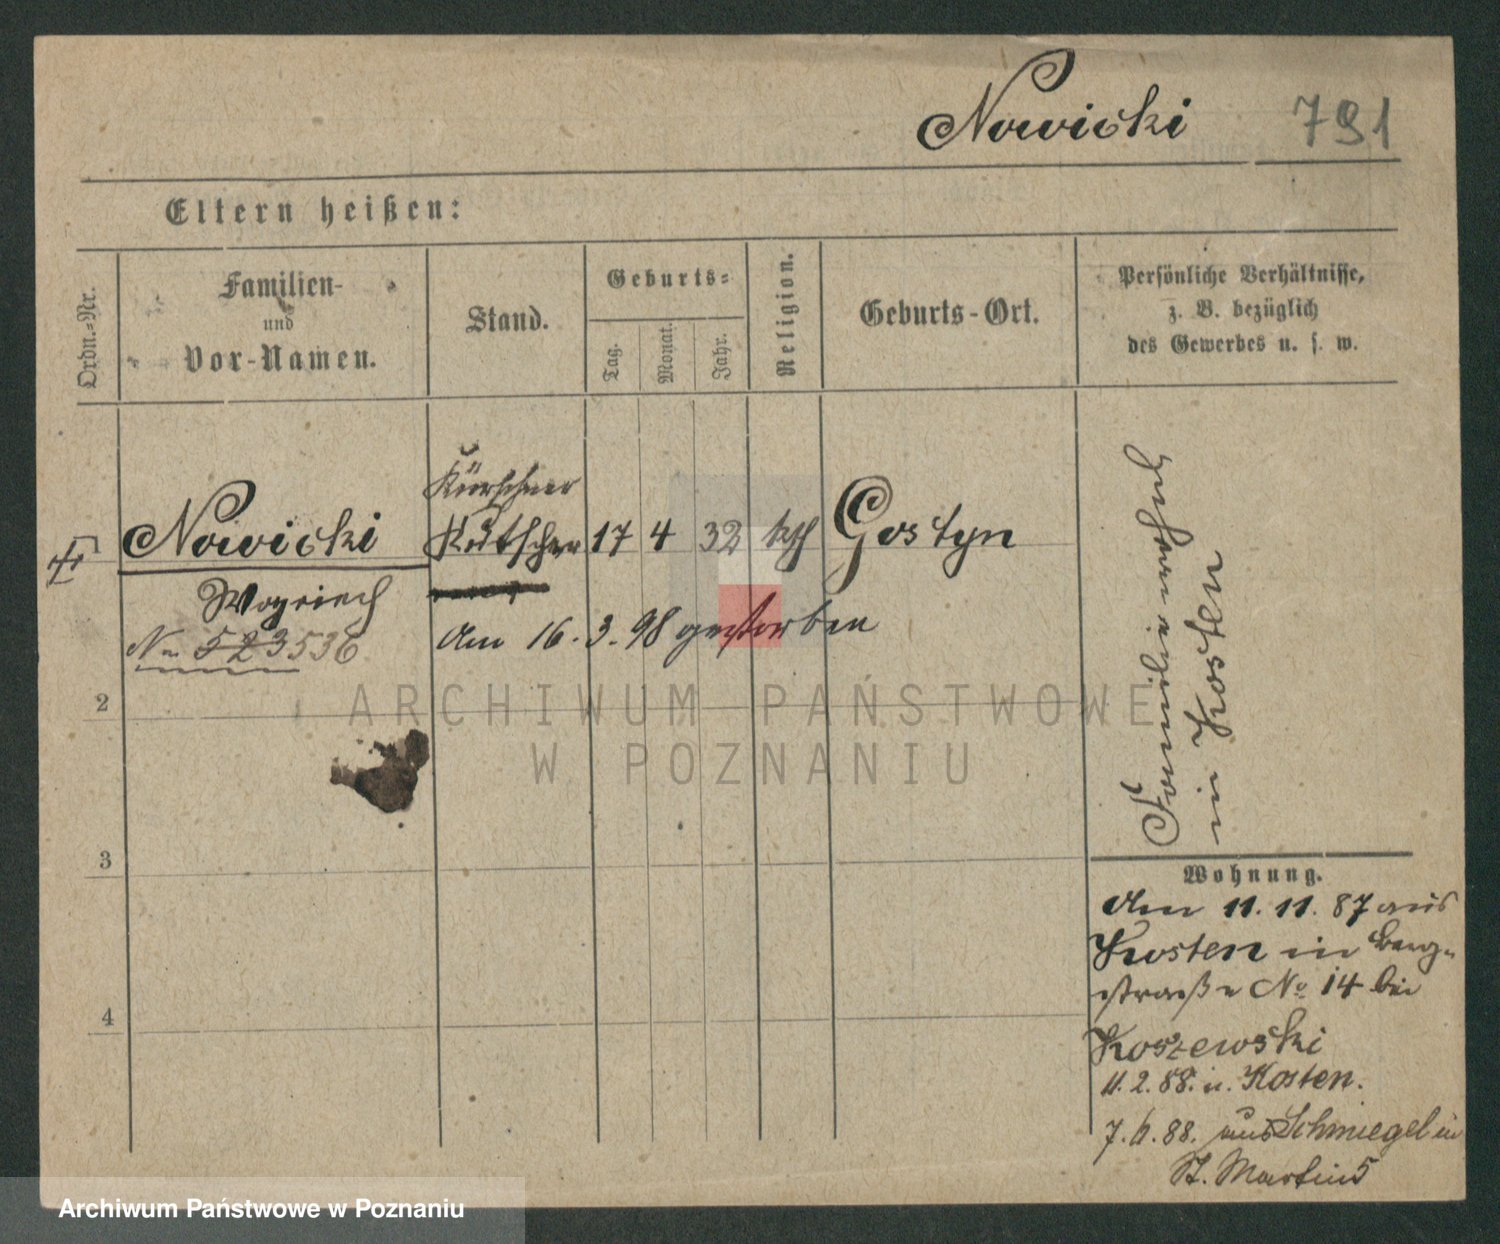 Nowicki 791
Eltern heißen:
Ordn.=Nr.
Familien-
und
Vor-Namen.
Stand.
Geburts=
Tag.
Monat.
Jahr.
Religion.
Geburts-Ort.
Persönliche Verhältnisse,
z. B. bezüglich
des Gewerbes u. s. w.
Kürschner
Nowicki Kutscher 17 4 32 kth Gostyn
Woyciech
No 523 536
Am 16. 3. 98 gestorben
Familie in
in Kosten
2
3
4
Wohnung.
Am 11. 11. 87 aus
Kosten in Berg-
straße No 14 bei
Koszewski
11. 2. 88. n. Kosten.
7. 6. 88. aus Schmiegel in
St. Martin 5
ARCHIWUM PAŃSTWOWE
W POZNANIU
Archiwum Państwowe w Poznaniu